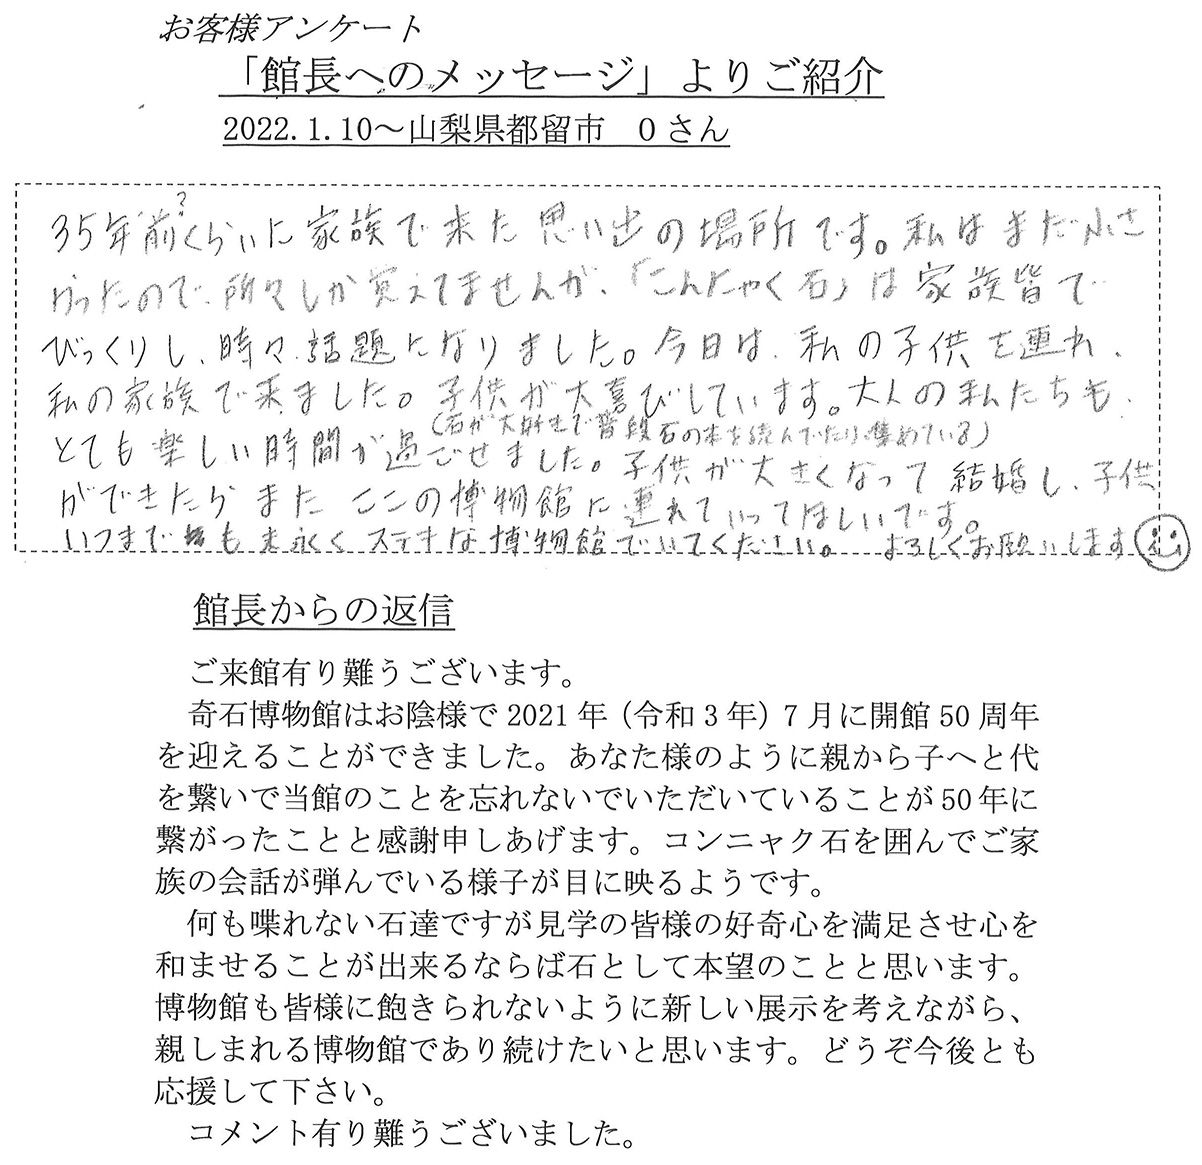 お客様アンケート
「館長へのメッセージ」よりご紹介
2022.1.10～山梨県都留市　Oさん
?
35年前くらいに家族で来た思い出の場所です。私はまだ小さ
かったので、所々しか覚えてませんが、「こんにゃく石」は家族皆で
びっくりし、時々、話題になりました。今日は、私の子供を連れ、
私の家族で来ました。子供が大喜びしています。大人の私たちも、
(石が大好きで普段石の本を読んでたり集めている)
とても楽しい時間が過ごせました。子供が大きくなって結婚し、子供
ができたらまたここの博物館に連れていってほしいです。
いつまでも末永くステキな博物館でいてください。よろしくお願いします
館長からの返信
ご来館有り難うございます。
奇石博物館はお陰様で2021年（令和3年）7月に開館50周年
を迎えることができました。あなた様のように親から子へと代
を繋いで当館のことを忘れないでいただいていることが50年に
繋がったことと感謝申しあげます。コンニャク石を囲んでご家
族の会話が弾んでいる様子が目に映るようです。
何も喋れない石達ですが見学の皆様の好奇心を満足させ心を
和ませることが出来るならば石として本望のことと思います。
博物館も皆様に飽きられないように新しい展示を考えながら、
親しまれる博物館であり続けたいと思います。どうぞ今後とも
応援して下さい。
コメント有り難うございました。